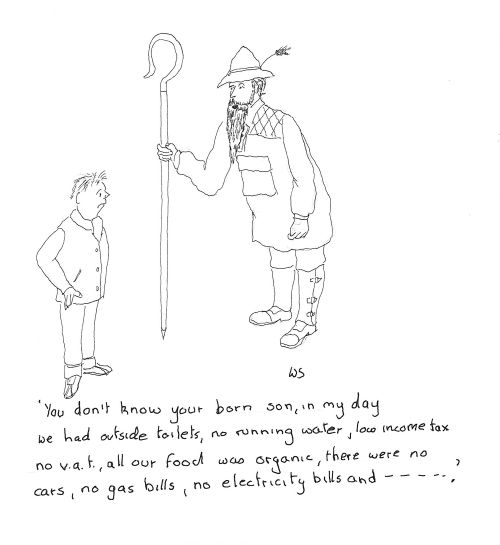 WS
'You don't know your born son, in my day
we had outside toilets, no running water, low income tax
no v.a.t., all our food was organic, there were no
cars, no gas bills, no electricity bills and - - - - -,'